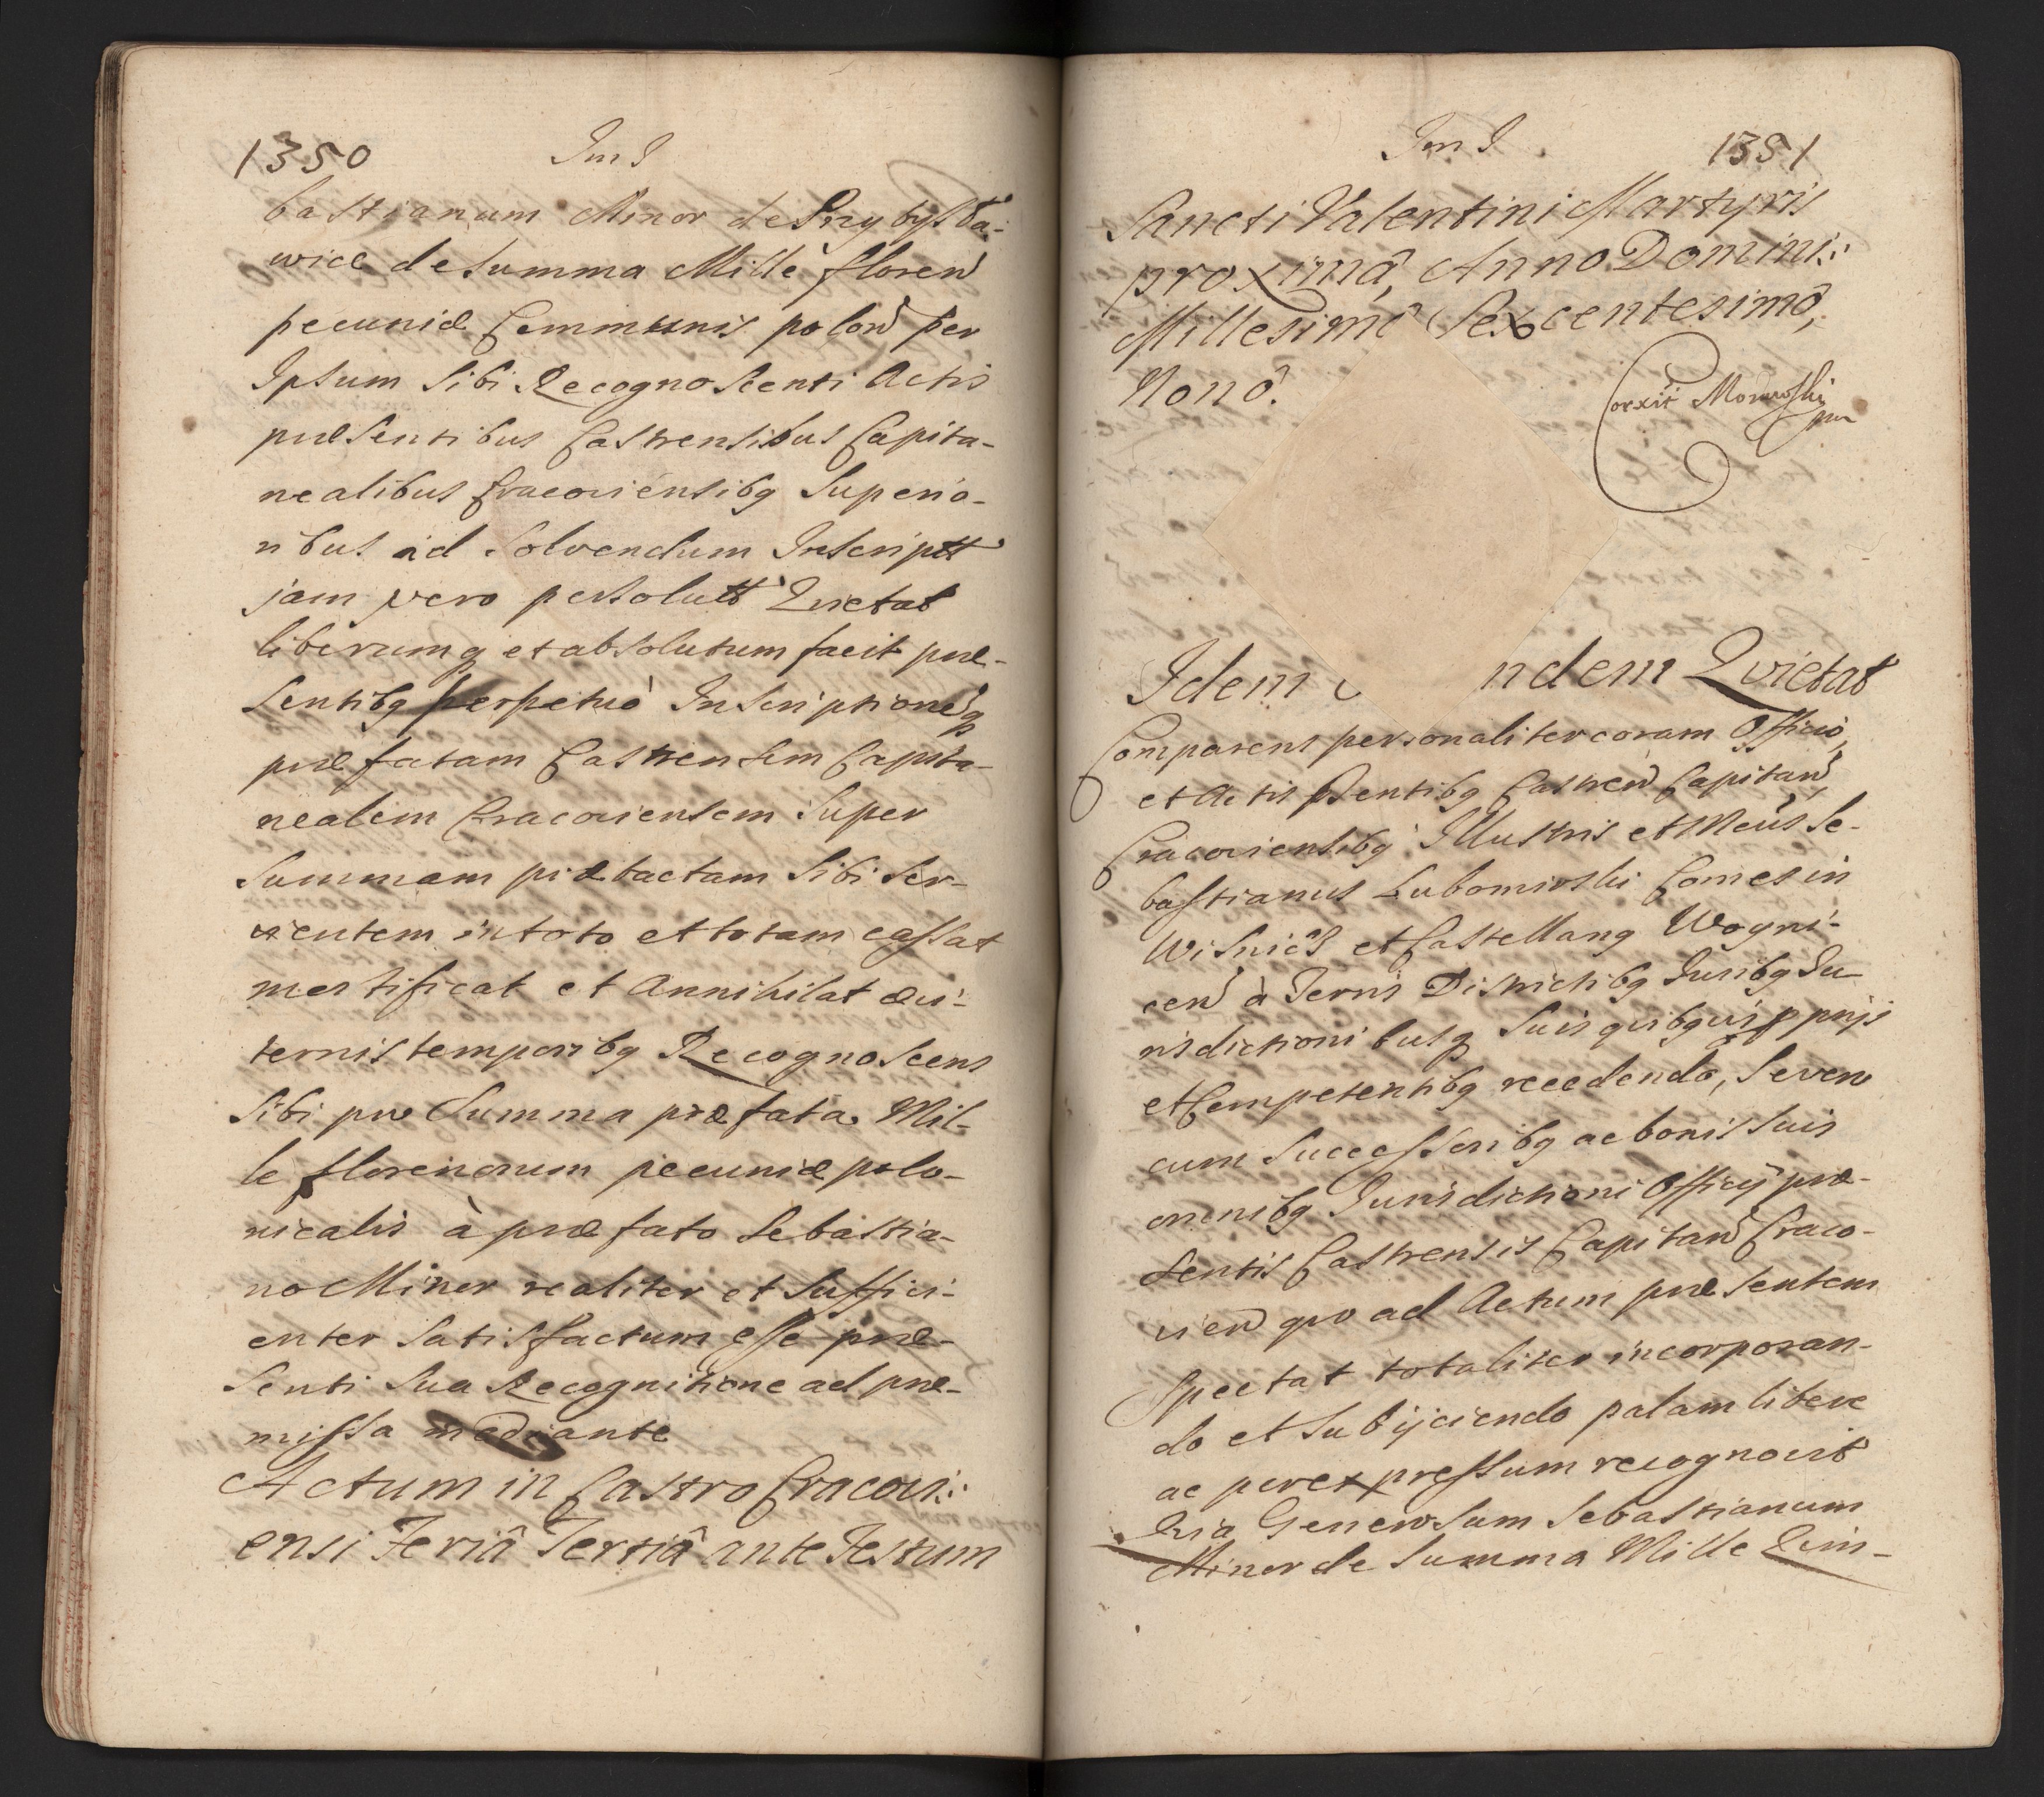 1350 Im I
bastianum Minor de Przybysła-
wice de Summa Mille floren
pecuniæ Communis polon per
Ipsum Sibi Recognoscenti Actis
præsentibus Castrensibus Capita-
nealibus Cracoviensibq Superio-
ribus ad Solvendum Inscriptt
jam vero persolutt Quietat
liberumq et absolutum facit præ-
sentibq perpetuò Inscriptionemq
præfatam Castrensem Capita-
nealem Cracoviensem Super
Summam prætactam Sibi Ser-
vientem in toto et totam cassat
mortificat et Annihilat ævi-
ternis temporibq Recognoscens
Sibi pro Summa præfata Mil-
le florenorum pecuniæ polo-
nicalis à præfato Sebastia-
no Minor realiter et Suffici-
enter Satisfactum esse præ-
senti Sua Recognitione ad præ-
missa mediante
Actum in Castro Cracovi:
ensi Feriâ Tertiâ ante Festum
Im I 1351
Sancti Valentini Martyris
proximâ, Anno Domini:
Millesimô Sexcentesimô,
Nonô.
Corxit Morawski
mp
Idem ndem Quietat
Comparens personaliter coram Officio,
et Actis psentibq Castren Capitan,
Cracoviensibq Illustris et Mcus Se-
bastianus Lubomirski Comes in
Wisnicz et Castellanq Woyni-
cen à Terris Districtibq Juribq Ju-
risdictionibusq Suis quibqvis pprijs
et Competentibq recedendo, Se vero
cum Successoribq ac bonis suis
omnibq Jurisdictioni Officij præ-
sentis Castrensis Capitan Craco-
vien quo ad Actum præsentem
Spectat totaliter incorporan-
do et Subijciendo palam libere
ac per expressum recognovit
Quia Generosum Sebastianum
Minor de Summa Mille Quin-